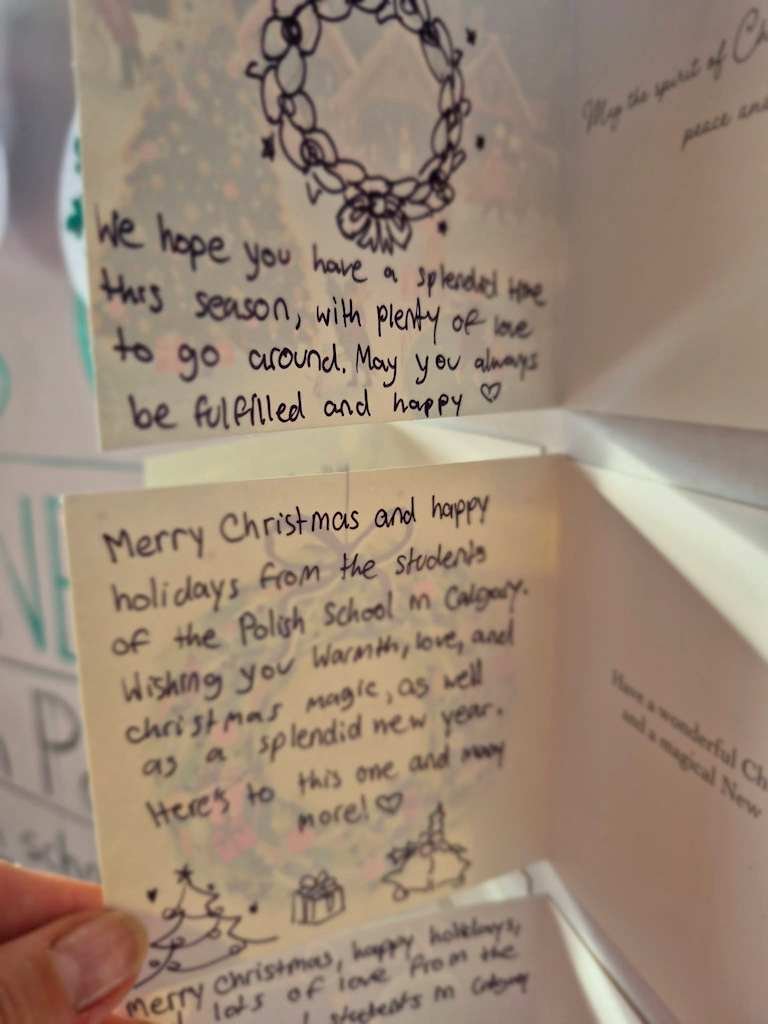 May the spirit of
peace
We hope you have a splendid time
this season, with plenty of love
to go around. May you always
be fulfilled and happy ♡
Merry Christmas and happy
holidays from the students
of the Polish School in Calgary.
Wishing you warmth, love, and
christmas magic, as well
as a splendid new year.
Here's to this one and many
more! ♡
Have a wonderful
and a magical New
Merry Christmas, happy holidays,
lots of love from the
students in Calgary